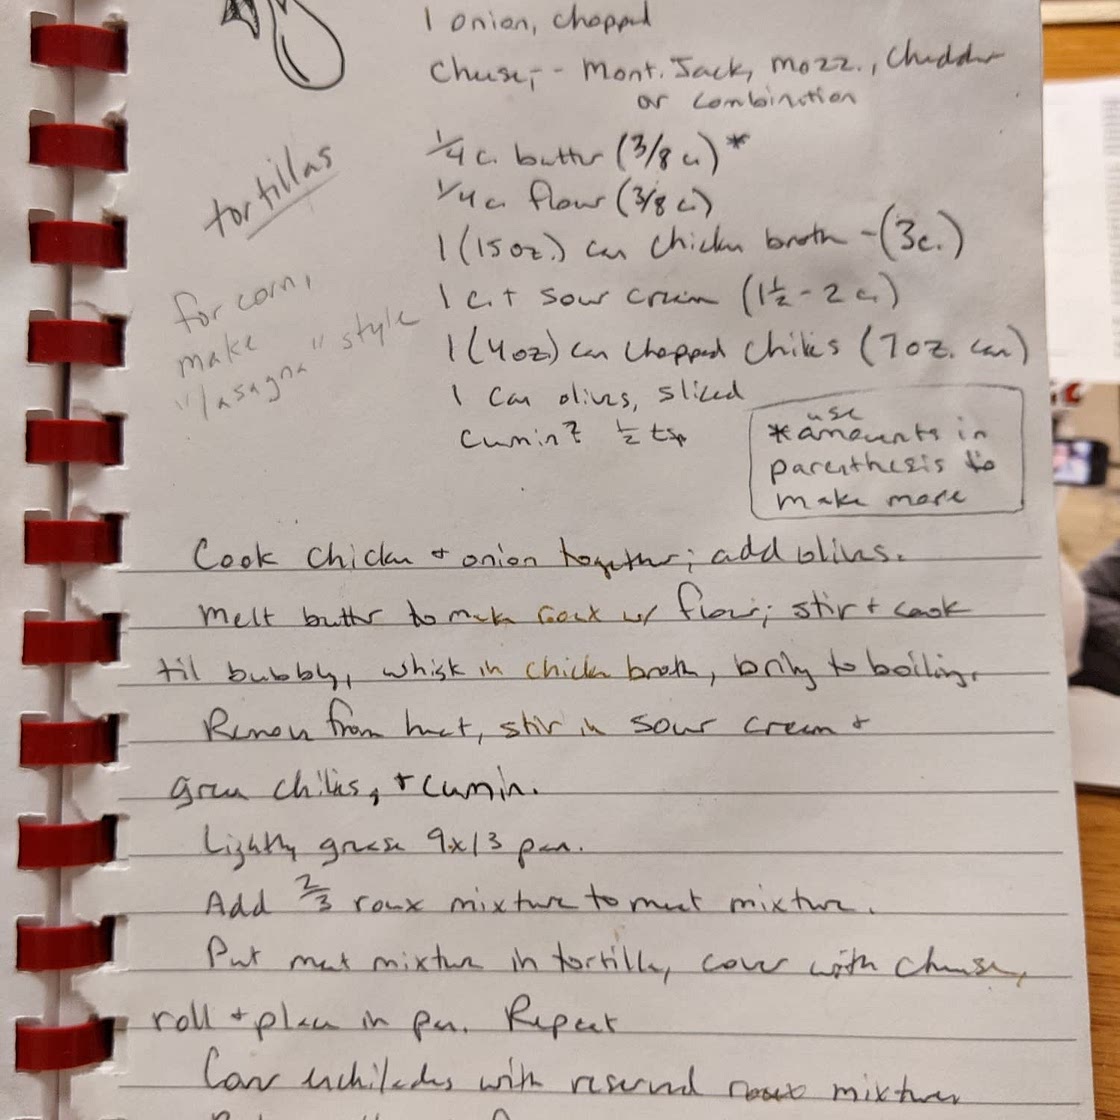 1 onion, chopped
Cheese, - Mont. Jack, mozz., Cheddar
or combination
1/4 c. butter (3/8 c.) *
1/4 c. flour (3/8 c.)
tortillas
1 (15 oz.) can chicken broth - (3 c.)
1 c. + sour cream (1 1/2 - 2 c.)
for corn,
make
"lasagna" style
1 (4 oz) can chopped chiles (7 oz. can)
1 can olives, sliced
cumin? 1/2 tsp
use
* amounts in
parenthesis to
make more
Cook chicken + onion together; add olives.
Melt butter to make roux w/ flour; stir + cook
til bubbly, whisk in chicken broth, bring to boiling.
Remove from heat, stir in sour cream +
green chiles, + cumin.
Lightly grease 9x13 pan.
Add 2/3 roux mixture to meat mixture.
Put meat mixture in tortilla, cover with cheese,
roll + place in pan. Repeat
Cover enchiladas with reserved roux mixture